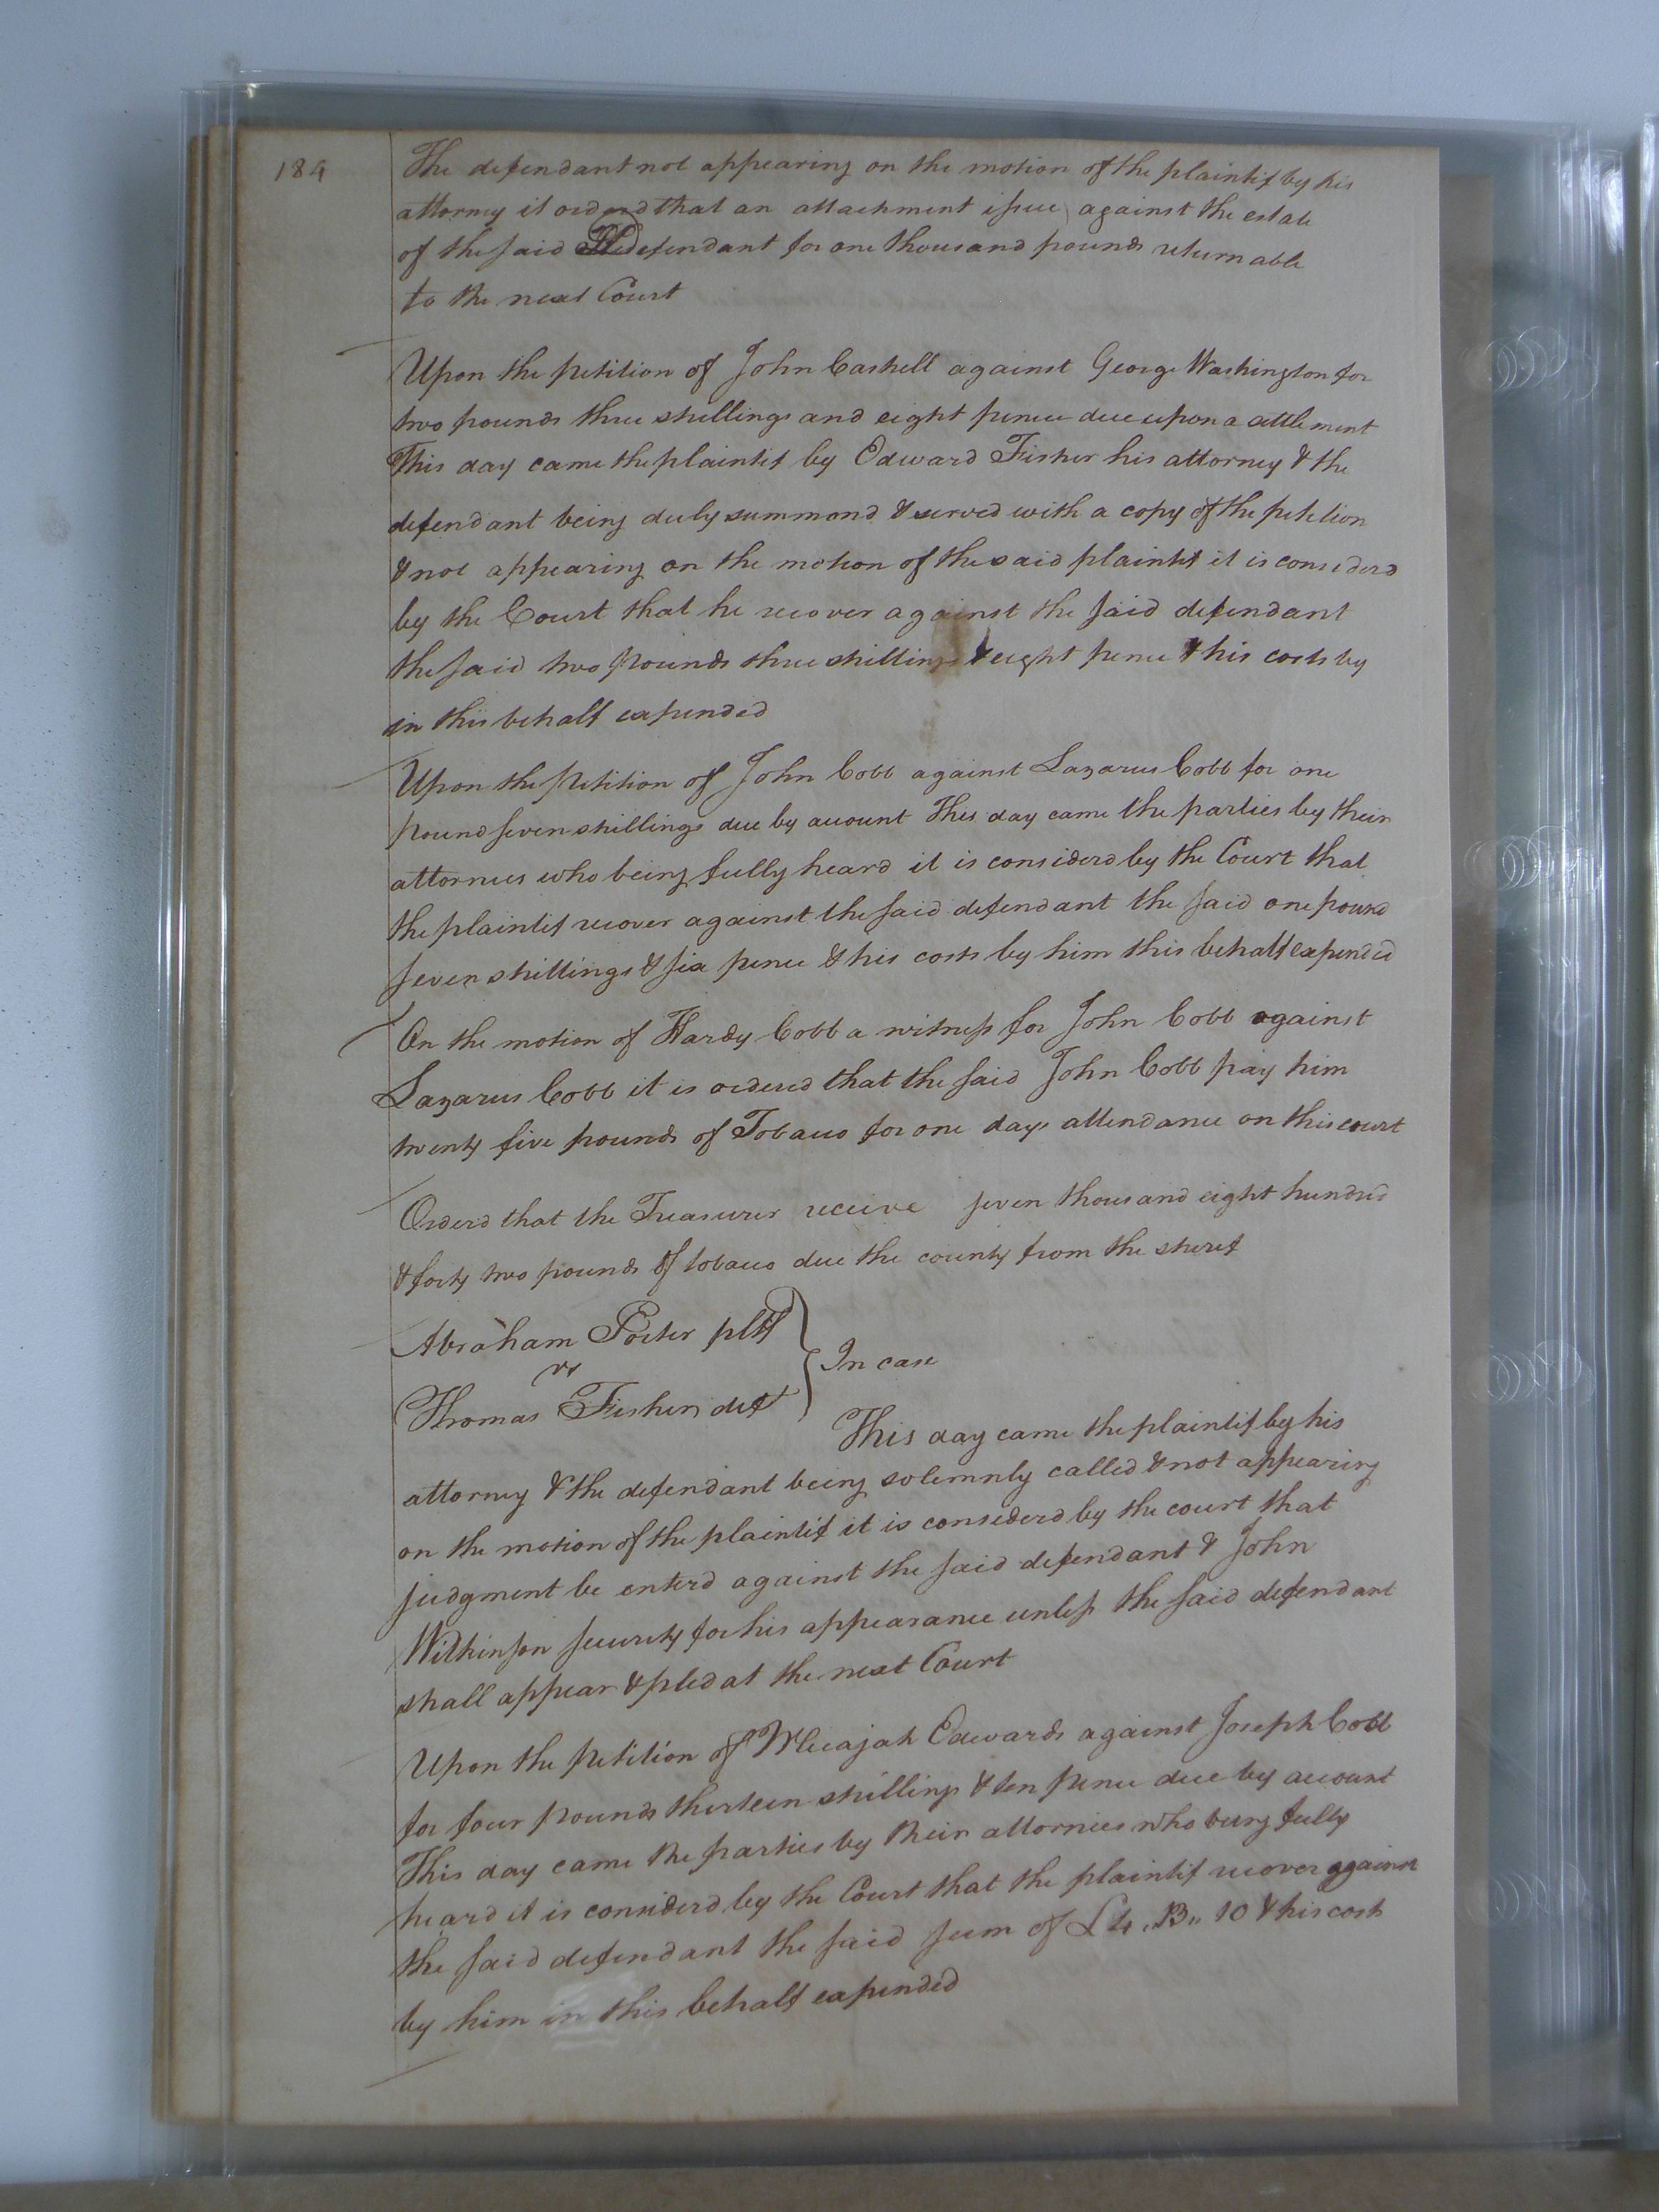 184
The defendant not appearing on the motion of the plaintif by his
attorney it orderd that an attachment issue against the estate
of the said defendant for one thousand pounds returnable
to the next Court
Upon the petition of John Caskell against George Washington for
two pounds three shillings and eight pence due upon a settlement
This day came the plaintif by Edward Fisher his attorney & the
defendant being duly summond & served with a copy of the petition
& not appearing on the motion of the said plaintif it is considerd
by the Court that he recover against the said defendant
the said two pounds three shillings & eight pence & his costs by
in this behalf expended
Upon the petition of John Cobb against Lazarus Cobb for one
pound seven shillings due by account This day came the parties by their
attornies who being fully heard it is considerd by the Court that
the plaintif recover against the said defendant the said one pound
seven shillings & six pence & his costs by him this behalf expended
On the motion of Hardy Cobb a witness for John Cobb against
Lazarus Cobb it is ordered that the said John Cobb pay him
twenty five pounds of Tobacco for one days attendance on this court
Orderd that the Treasurer receive seven thousand eight hundred
& forty two pounds of tobacco due the county from the sherif
Abraham Porter pltf
vs
In case
Thomas Fisher deft
This day came the plaintif by his
attorney & the defendant being solemnly called & not appearing
on the motion of the plaintif it is considerd by the court that
judgment be enterd against the said defendant & John
Wilkinson security for his appearance unless the said defendant
shall appear & pled at the next Court
Upon the petition of Micajah Edwards against Joseph Cobb
for four pounds thirteen shillings & ten pence due by account
This day came the parties by their attornies who being fully
heard it is considerd by the Court that the plaintif recover against
the said defendant the said sum of £4,,13,,10 & his costs
by him in this behalf expended